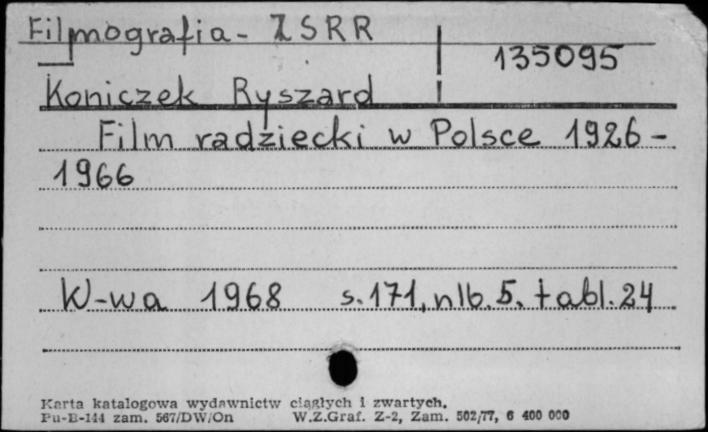 Filmografia - ZSRR
135095
Koniczek Ryszard
Film radziecki w Polsce 1926 -
1966
W-wa 1968 s.171, nlb. 5. tabl. 24
Karta katalogowa wydawnictw ciągłych i zwartych.
Pu-B-144 zam. 567/DW/On W.Z.Graf. Z-2, Zam. 502/77, 6 400 000